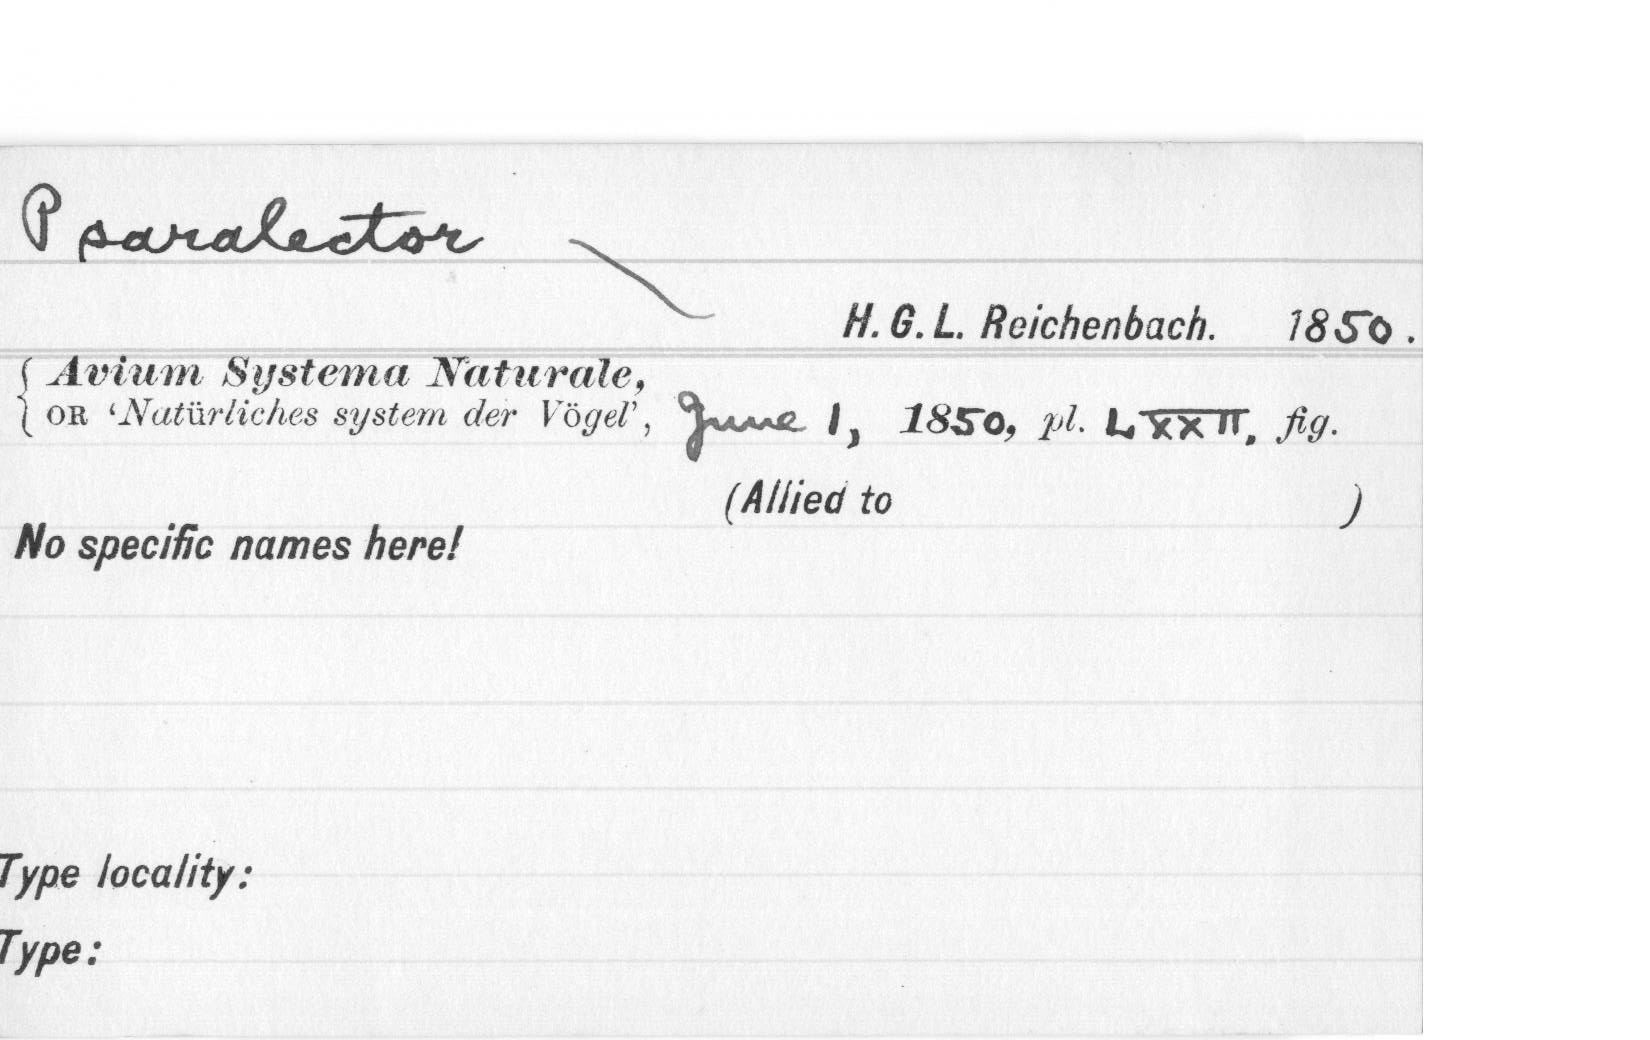 Psaralector
H. G. L. Reichenbach. 1850.
Avium Systema Naturale,
OR ‘Natürliches system der Vögel’, June 1, 1850, pl. LXXII, fig.
(Allied to )
No specific names here!
Type locality:
Type: